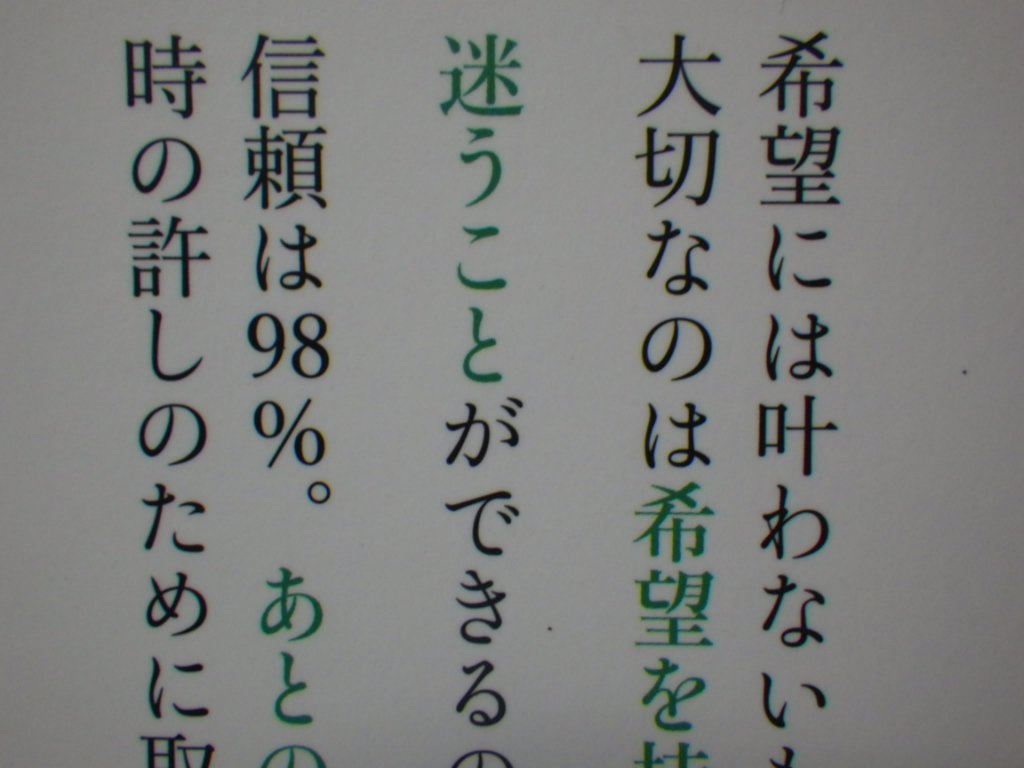 希望には叶わない
大切なのは希望を
迷うことができる
信頼は98%。あと
時の許しのために